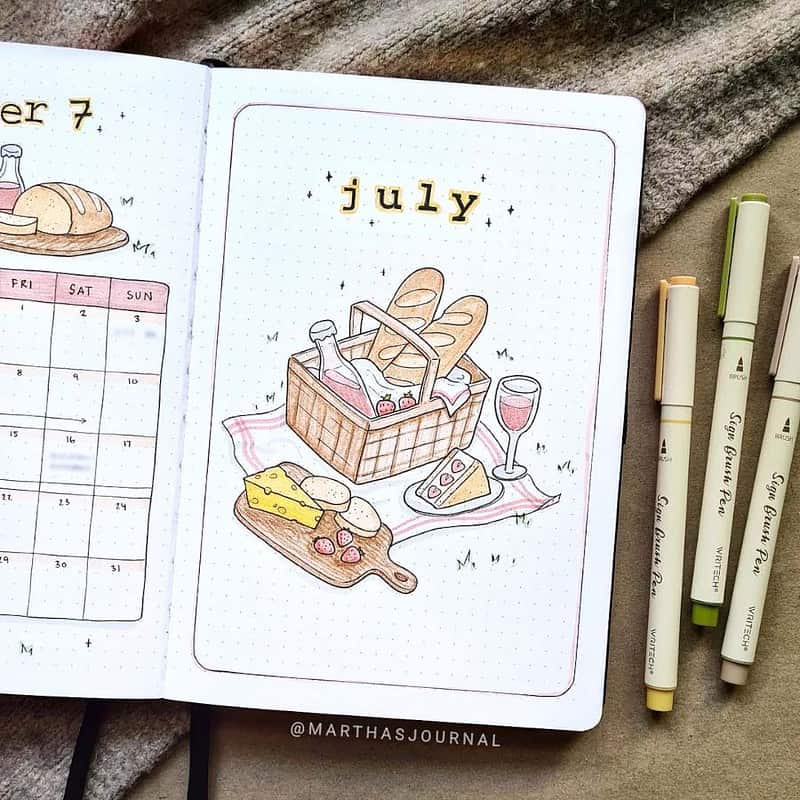 er 7
FRI SAT SUN
1 2 3
8 9 10
15 16 17
22 23 24
29 30 31
july
BRUSH
Sign Brush Pen
WRITECH®
BRUSH
Sign Brush Pen
WRITECH®
BRUSH
Sign Brush Pen
WRITECH®
@MARTHASJOURNAL